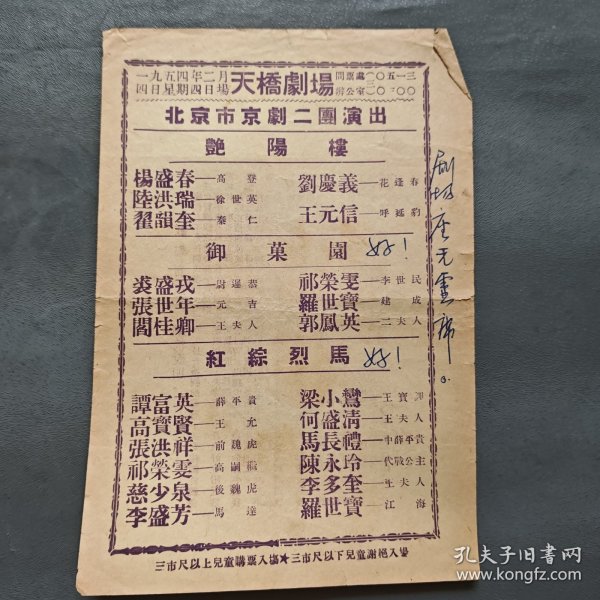 一九五四年二月
四日星期四日場
天橋劇場
問票處(三)〇五一三
辦公室(三)〇三〇〇
北京市京劇二團演出
艷陽樓
楊盛春—高登 劉慶義—花逢春
陸洪瑞—徐世英
翟韻奎—秦仁 王元信—呼延豹
御菓園 好!
裘盛戎—尉遲恭 祁榮雯—李世民
張世年—元吉 羅世寶—建成
閻桂卿—王夫人 郭鳳英—二夫人
紅綜烈馬 好!
譚富英—薛平貴 梁小鸞—王寶釧
高寶賢—王允 何盛清—王夫人
張洪祥—前魏虎 馬長禮—中薛平貴
祁榮雯—高嗣繼 陳永玲—代戰公主
慈少泉—後魏虎 李多奎—王夫人
李盛芳—馬達 羅世寶—江海
三市尺以上兒童購票入場★三市尺以下兒童謝絕入場
劇场座无虚席
孔夫子旧书网
www.kongfz.com